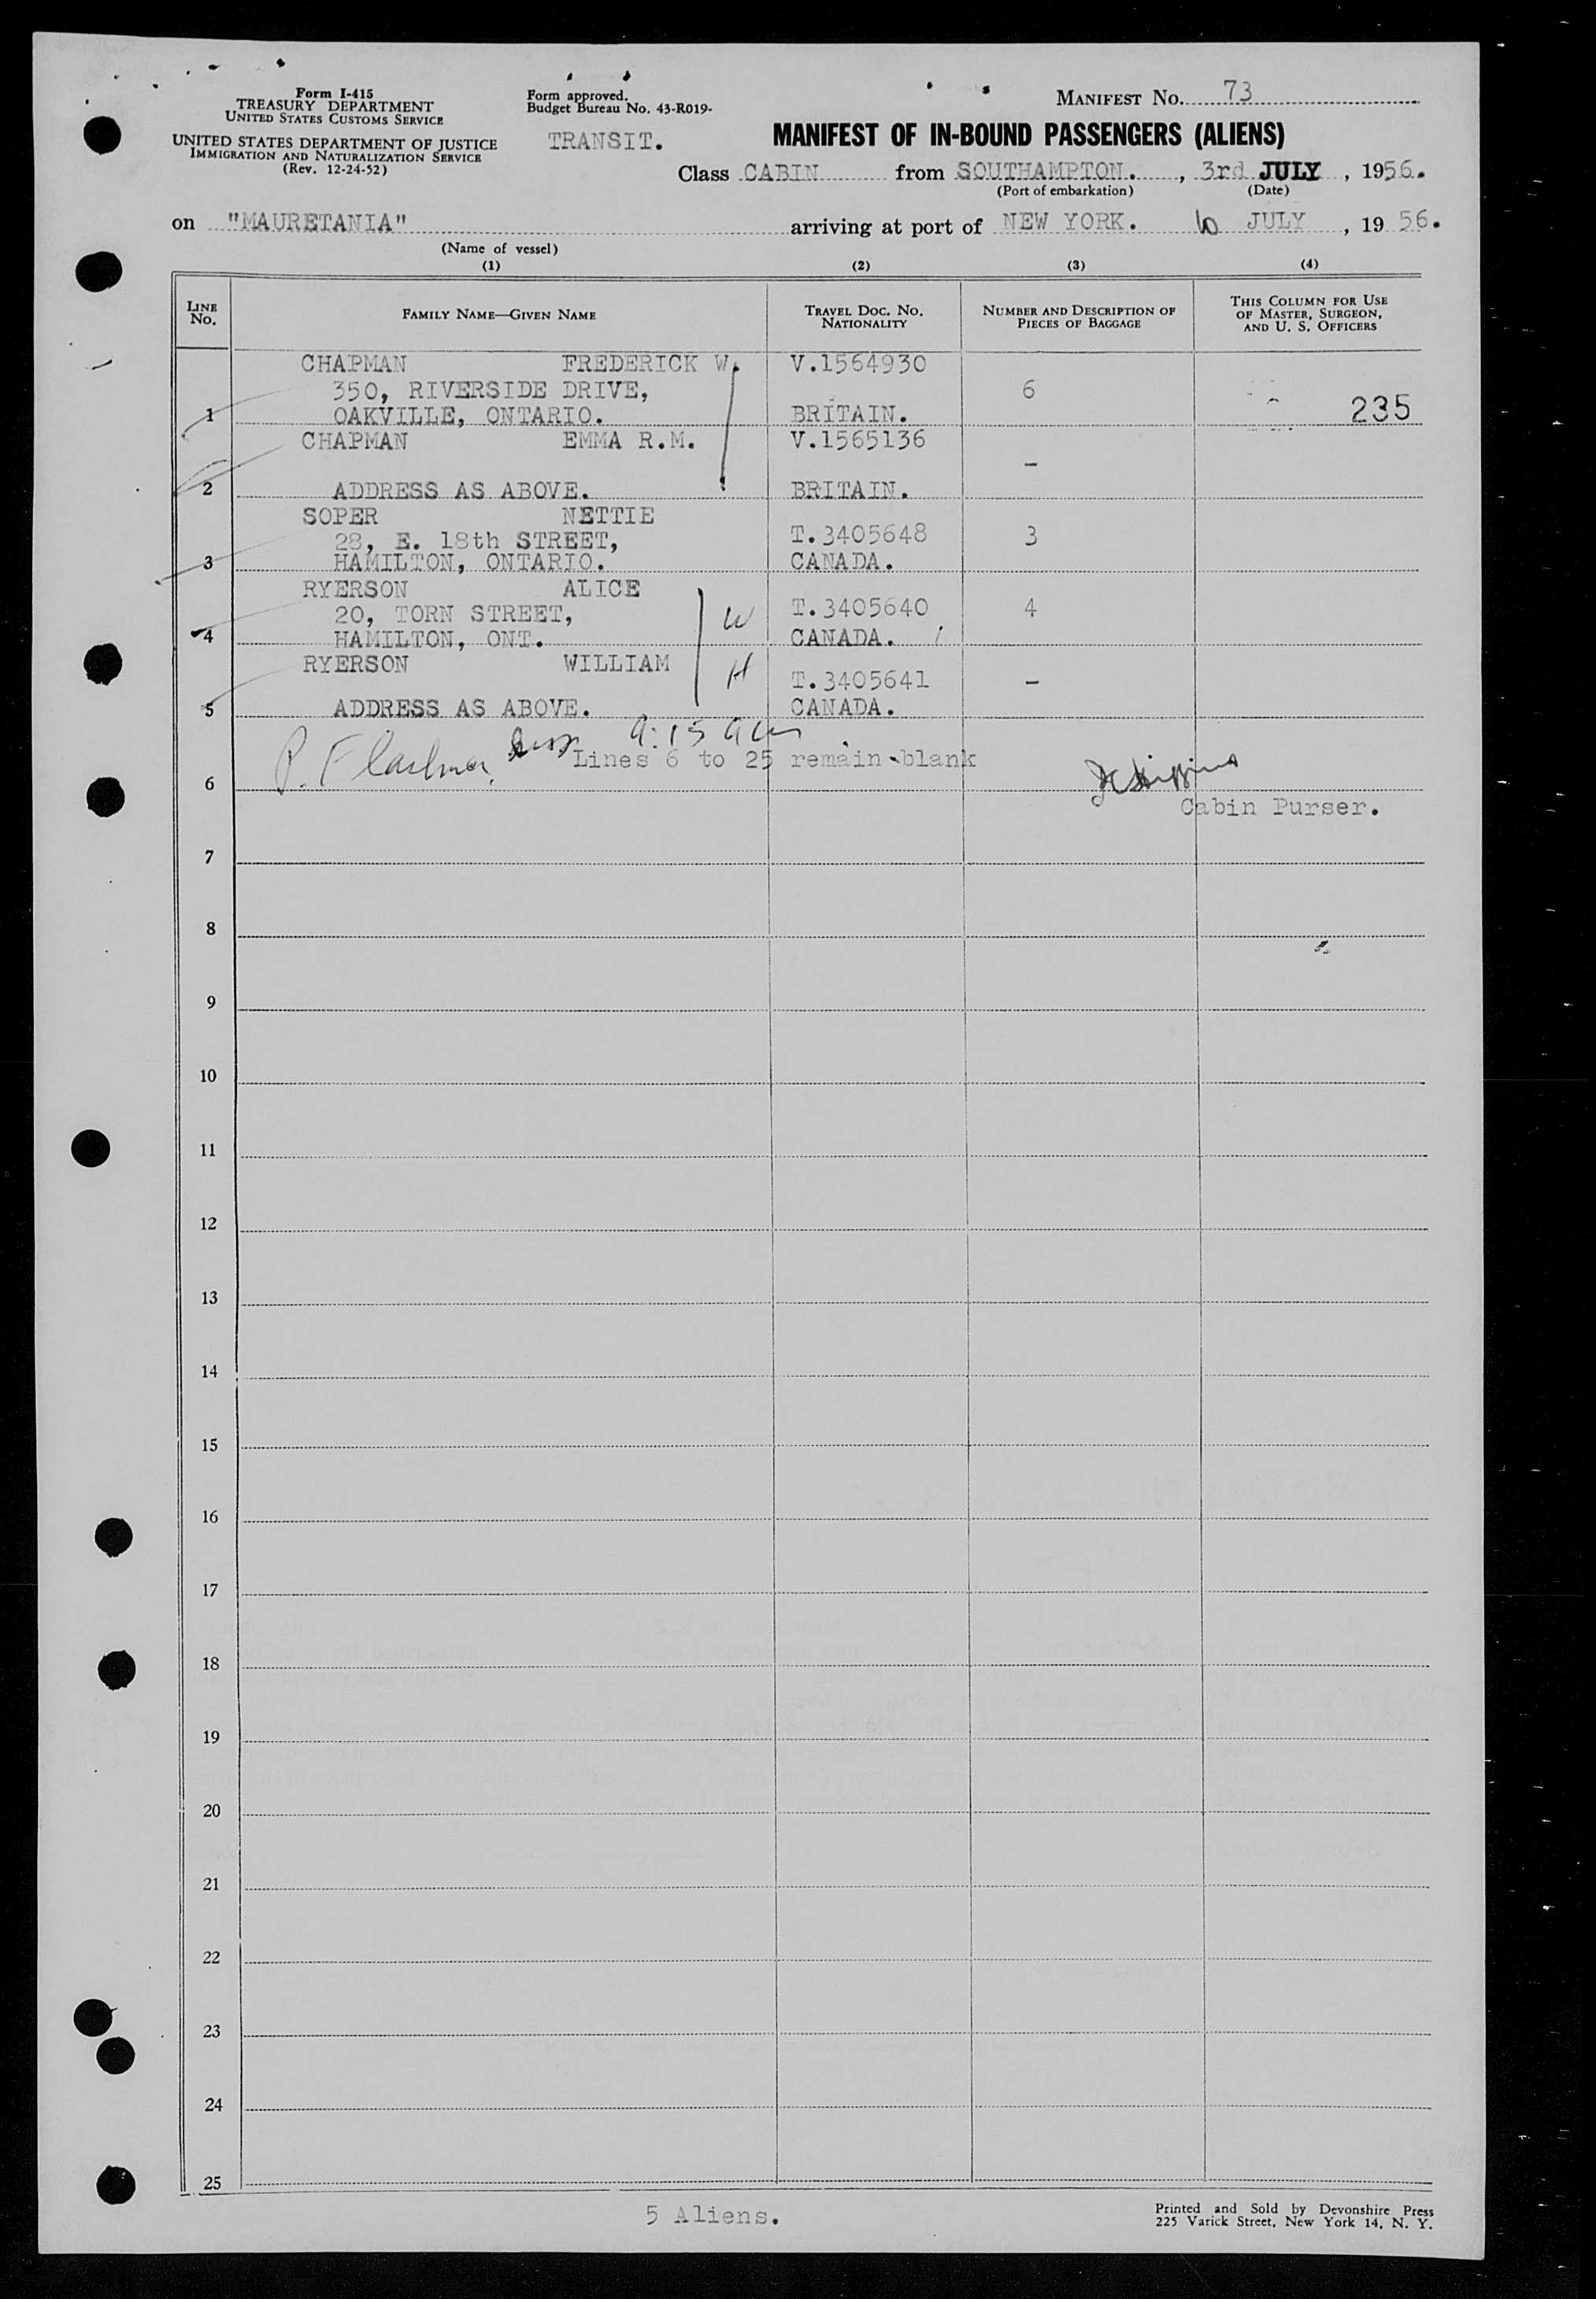 Form I-415
TREASURY DEPARTMENT
UNITED STATES CUSTOMS SERVICE
UNITED STATES DEPARTMENT OF JUSTICE
IMMIGRATION AND NATURALIZATION SERVICE
(Rev. 12-24-52)
Form approved.
Budget Bureau No. 43-R019-
TRANSIT.
MANIFEST NO. 73
MANIFEST OF IN-BOUND PASSENGERS (ALIENS)
Class CABIN from SOUTHAMPTON. , 3rd JULY , 1956.
(Port of embarkation) (Date)
on "MAURETANIA" arriving at port of NEW YORK. 10 JULY , 19 56.
(Name of vessel)
(1) (2) (3) (4)
LINE NO. FAMILY NAME—GIVEN NAME TRAVEL DOC. NO. NATIONALITY NUMBER AND DESCRIPTION OF PIECES OF BAGGAGE THIS COLUMN FOR USE OF MASTER, SURGEON, AND U. S. OFFICERS
CHAPMAN FREDERICK W. V.1564930
350, RIVERSIDE DRIVE, 6
1 OAKVILLE, ONTARIO. BRITAIN. 235
CHAPMAN EMMA R.M. V.1565136
-
2 ADDRESS AS ABOVE. BRITAIN.
SOPER NETTIE
28, E. 18th STREET, T.3405648 3
3 HAMILTON, ONTARIO. CANADA.
RYERSON ALICE
20, TORN STREET, W T.3405640 4
4 HAMILTON, ONT. CANADA.
RYERSON WILLIAM H
T.3405641 -
5 ADDRESS AS ABOVE. CANADA.
9:15 am
P. Lines 6 to 25 remain blank
6
Cabin Purser.
7
8
9
10
11
12
13
14
15
16
17
18
19
20
21
22
23
24
25
5 Aliens.
Printed and Sold by Devonshire Press
225 Varick Street, New York 14, N. Y.